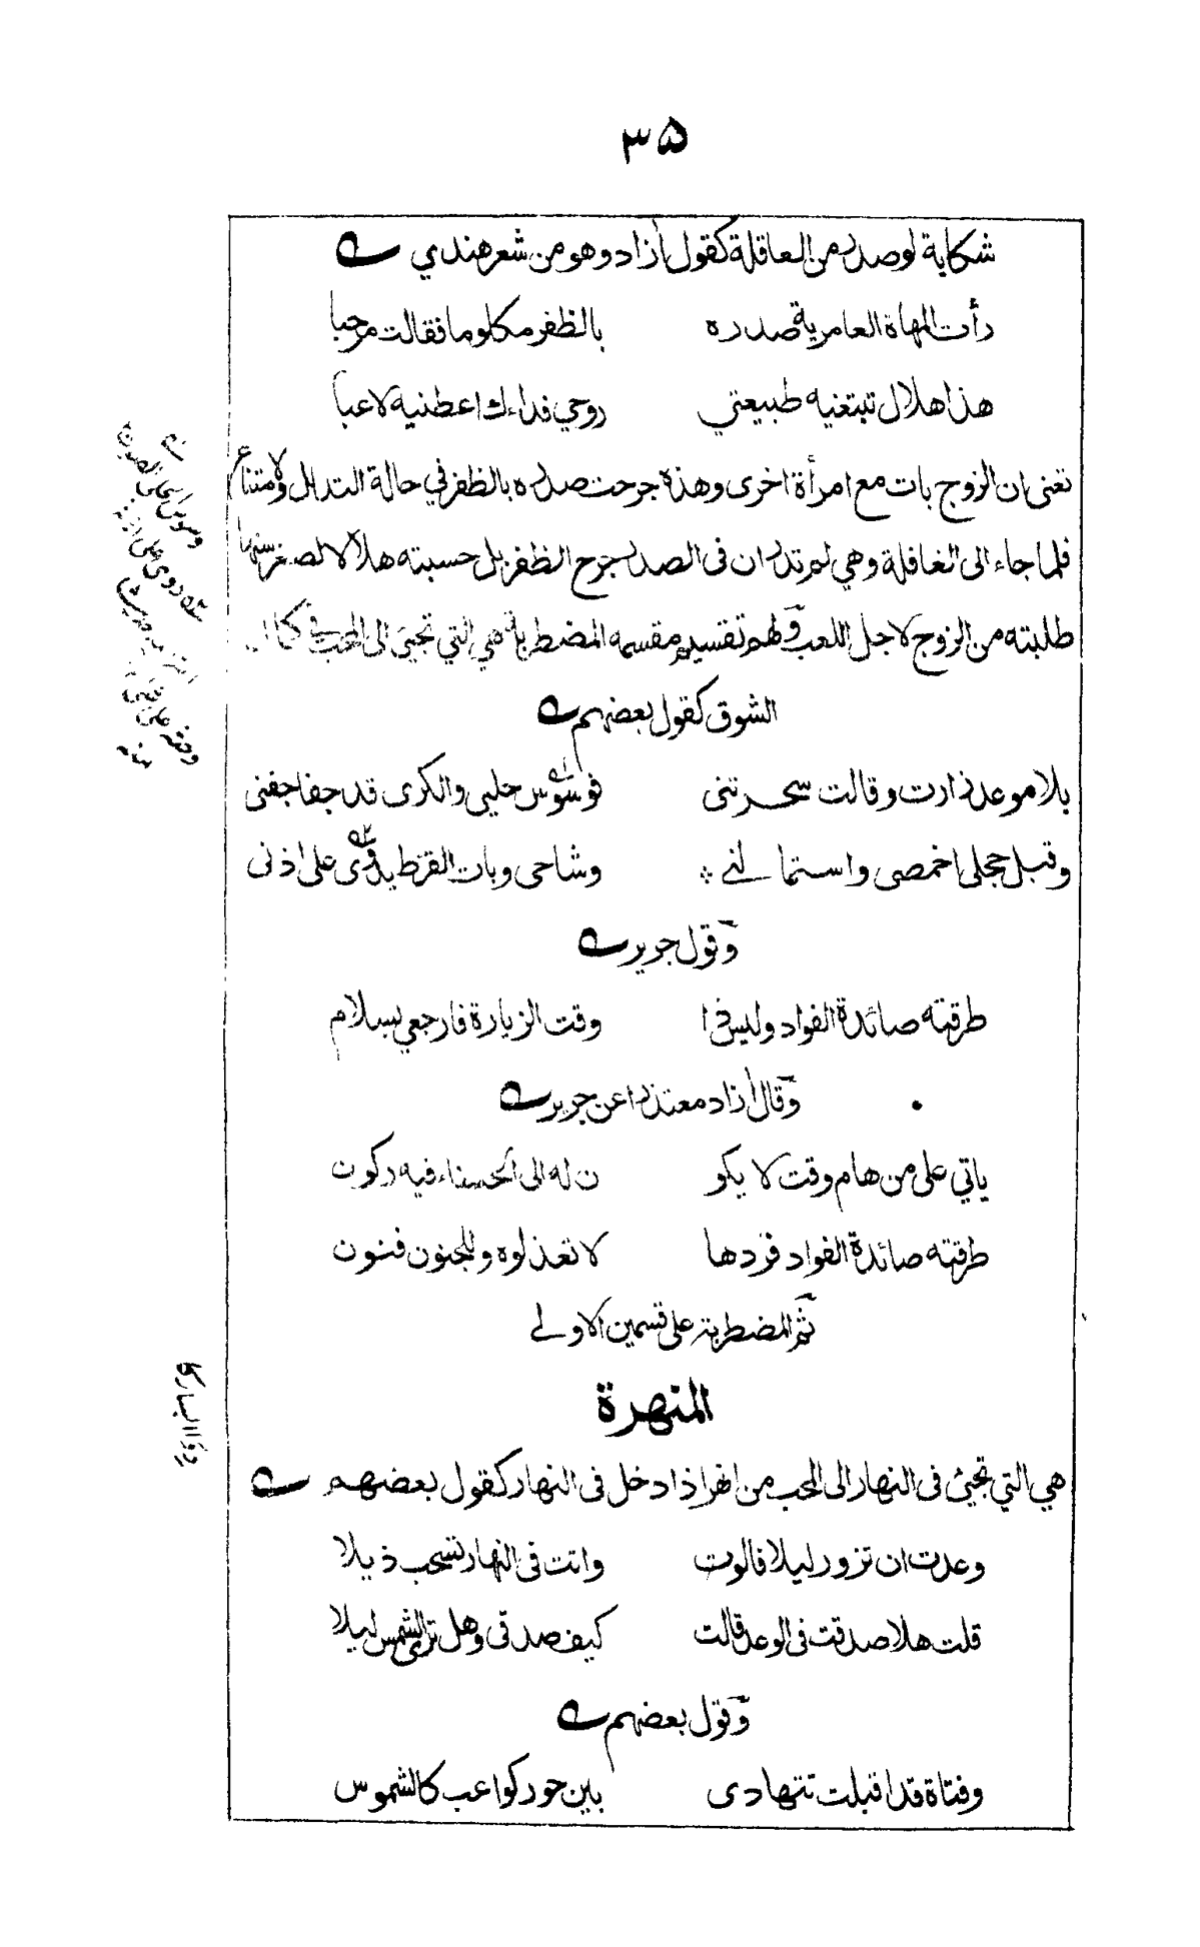 ٣٥
شكاية لو صدر من العاقلة كقول أزاد وهو من شعر هندي
رأت المهاة العامرية صدره بالظفر مكلوما فقالت مرحبا
هذا هلال تبتغيه طبيعتي روحي فداءك اعطنيه لاعبا
تعنى ان الزوج بات مع امرأة اخرى وهذه جرحت صدره بالظفر في حالة التدلل والامتناع
فلما جاء الى الغافلة وهي لم تدر ان فى الصدر جرح الظفر بل حسبته هلالا لصغر سنها
طلبته من الزوج لاجل اللعب ولهم تقسيم مقسمه المضطربة هي التي تجيئ الى المحب في كمال
الشوق كقول بعضهم
بلا موعد زارت وقالت سحرتنى فوسوس حليي والكرى قد جفا جفنى
وقبل حجلى اخمصى واستمالنے وشاحى وبات القرط يدوى على اذنى
وقول جرير
طرقته صائدة الفواد وليس ذا وقت الزيارة فارجعي بسلام
وقال أزاد معتذرا عن جرير
ياتي على من هام وقت لا يكو ن له الى الحسناء فيه ركون
طرقته صائدة الفواد فردها لا تعذلوه وللجنون فنون
ثم المضطربة على قسمين الاولے
المنهرة
هي التي تجيئ فى النهار الى المحب من انهر اذا دخل فى النهار كقول بعضهم
وعدت ان تزور ليلا فالوت واتت فى النهار تسحب ذيلا
قلت هلا صدقت فى الوعد قالت كيف صدقى وهل ترى الشمس ليلا
وقول بعضهم
وفتاة قد اقبلت تتهادى بين حور كواعب كالشموس